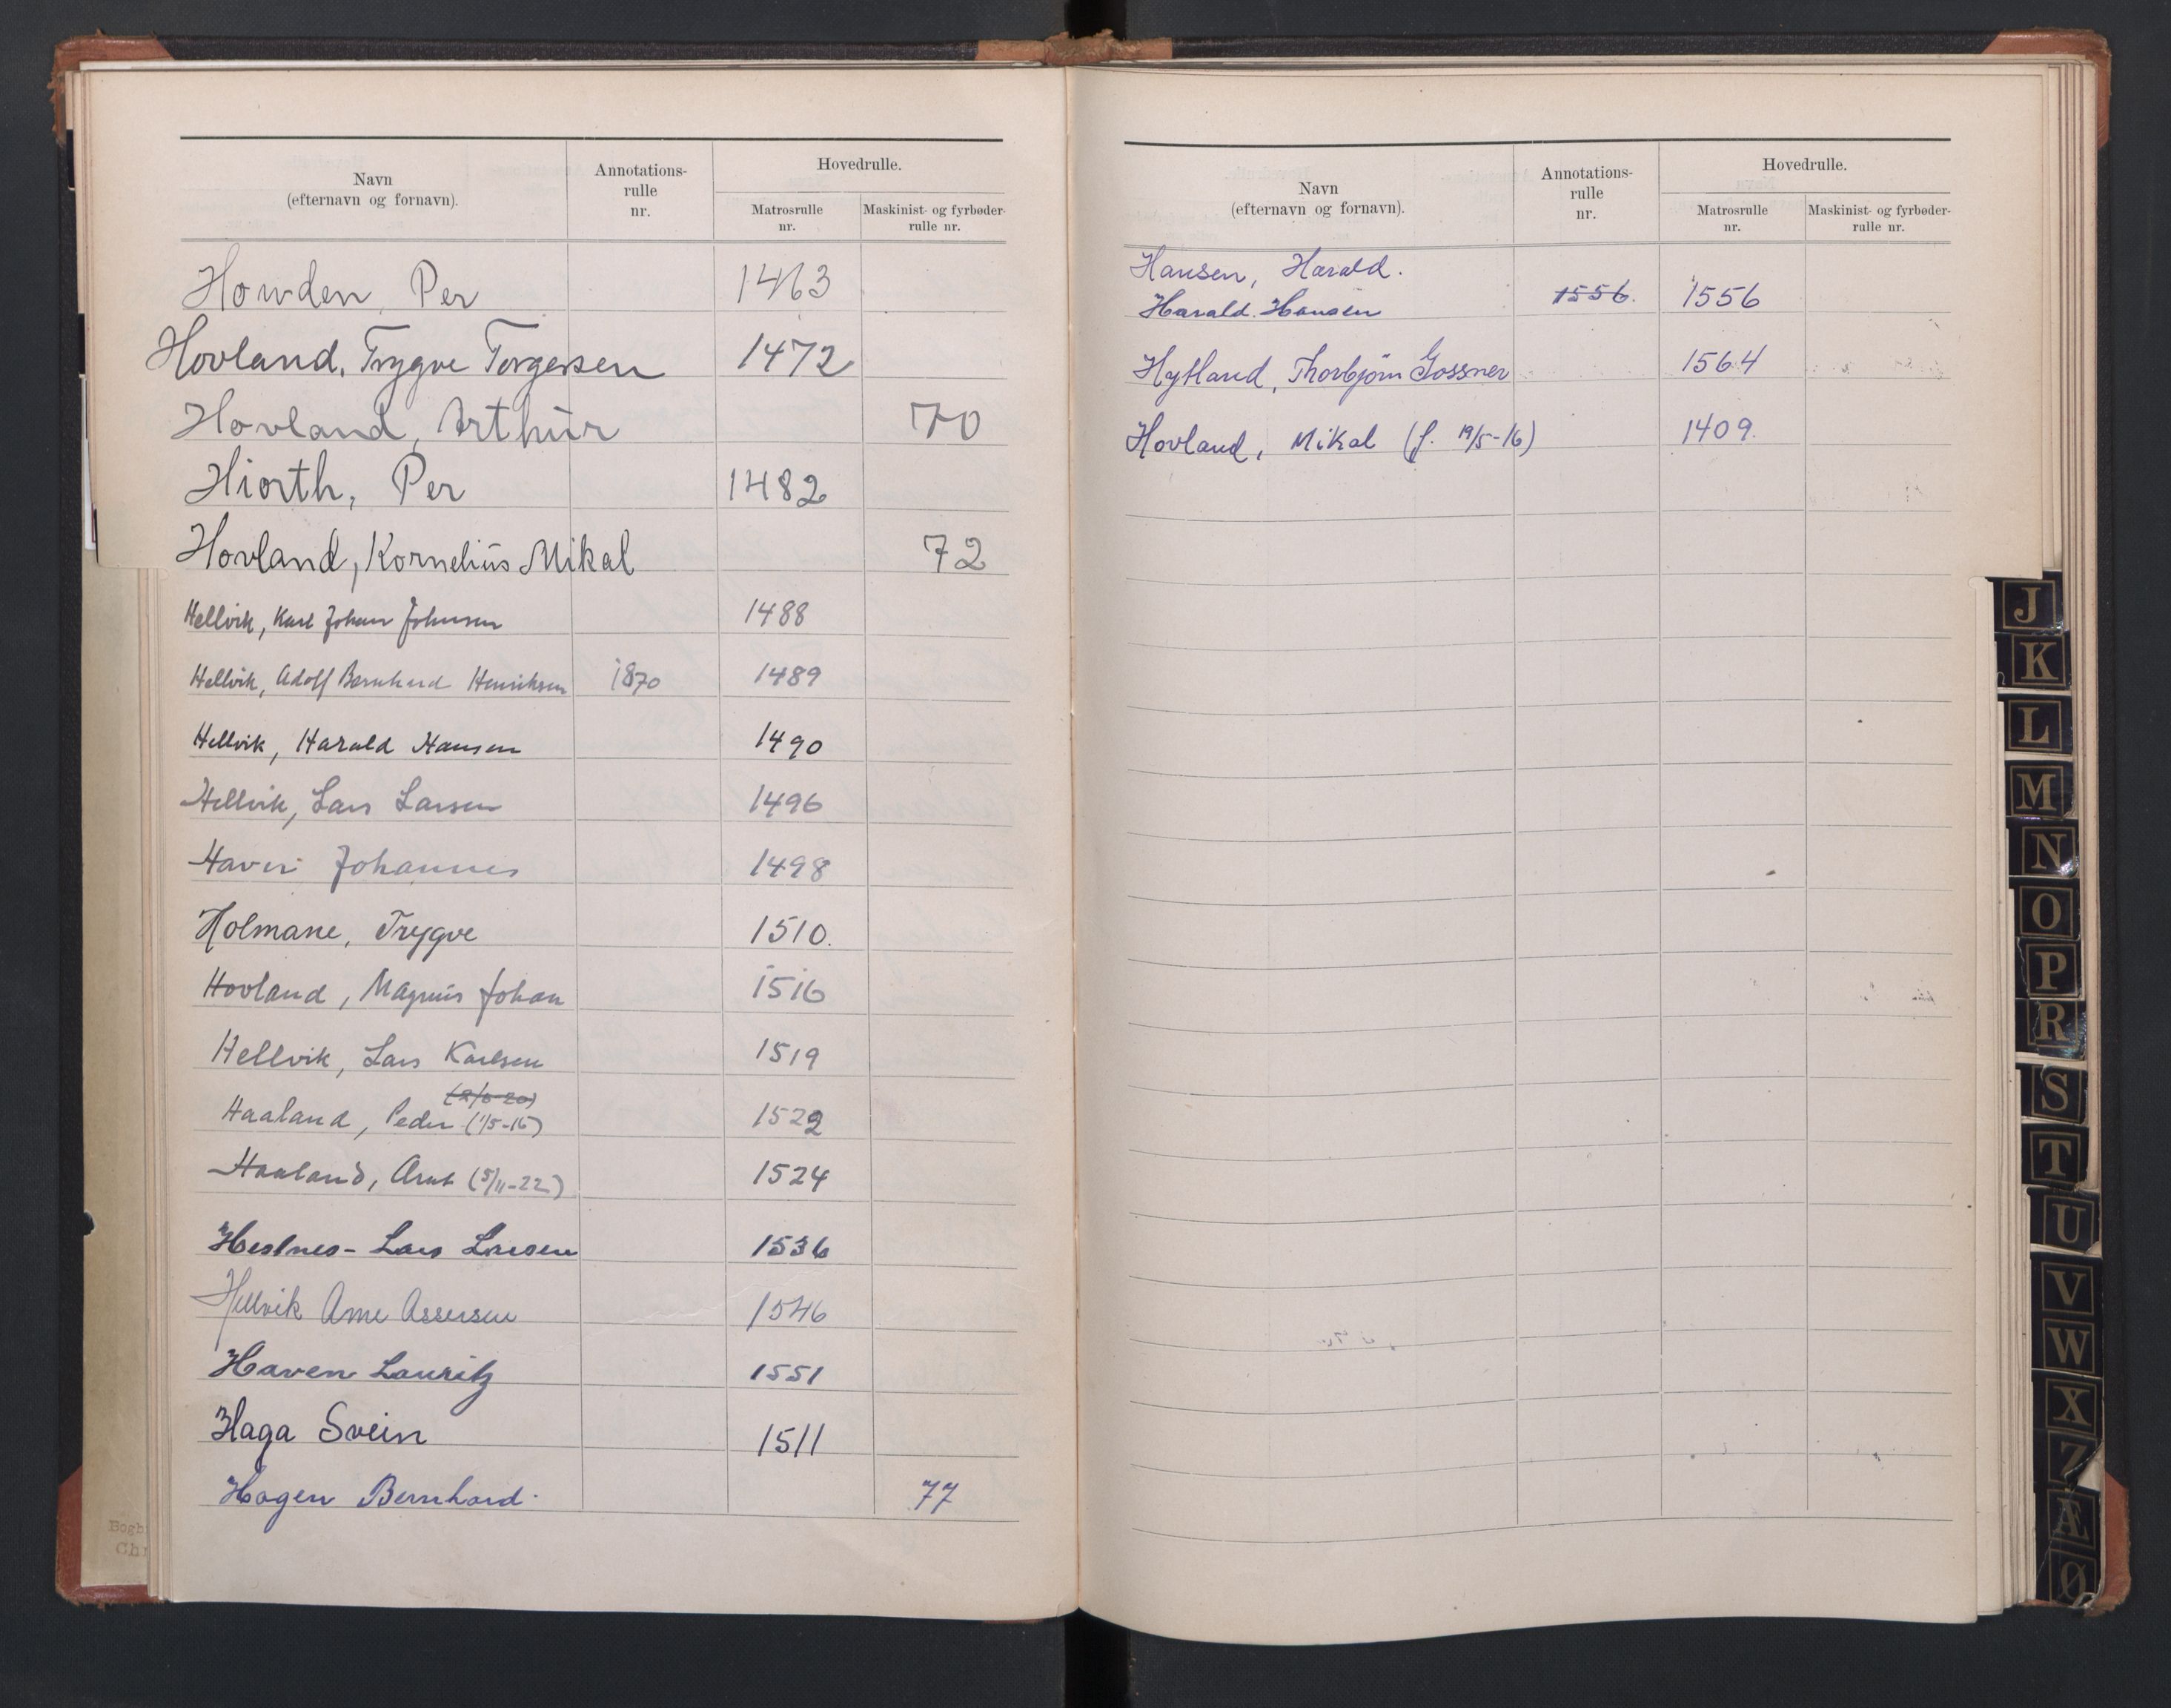 Navn
(efternavn og fornavn).
Annotations-
rulle
nr.
Hovedrulle.
Matrosrulle
nr.
Maskinist- og fyrbøder-
rulle nr.
Howden, Per 1463
Hovland, Trygve Torgersen 1472
Hovland, Arthur 70
Hiorth, Per 1482
Hovland, Kornelius Mikal 72
Hellvik, Karl Johan Johnsen 1488
Hellvik, Adolf Bernhard Henriksen 1870 1489
Hellvik, Harald Hansen 1490
Hellvik, Lars Larsen 1496
Haver Johannes 1498
Holmane, Trygve 1510.
Hovland, Magnus Johan 1516
Hellvik, Lars Karlsen 1519
Haaland, Peder (1/5-16) 1522
Haaland, Arnt (5/11-22) 1524
Hestnes - Lars Larsen 1536
Hellvik Arne Assersen 1546
Haven Lauritz 1551
Haga Svein 1511
Hagen Bernhard. 77
Bogb
Chr
Navn
(efternavn og fornavn).
Annotations-
rulle
nr.
Hovedrulle.
Matrosrulle
nr.
Maskinist- og fyrbøder-
rulle nr.
Hansen, Harald.
Harald Hansen 1556. 1556
Hytland, Thorbjörn Gossner 1564
Hovland, Mikal (f. 19/5-16) 1409.
J
K
L
M
N
O
P
R
S
T
U
V
W
X
Z
Æ
Ø